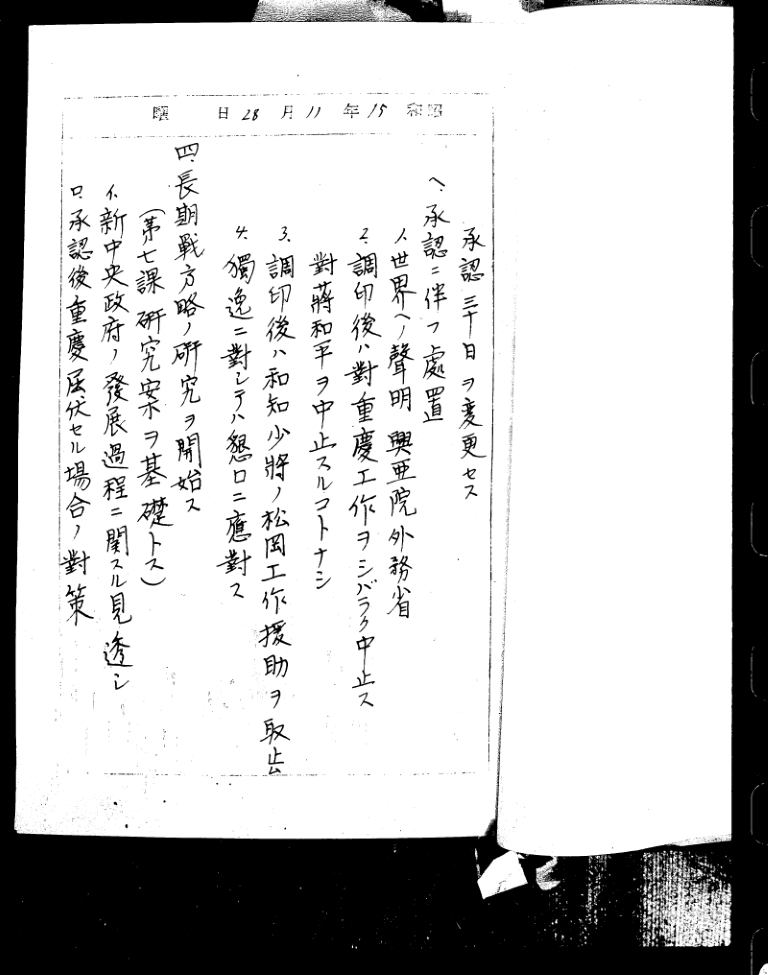 昭和15年11月28日 曜
承認三十日ヲ変更セス
ヘ、承認ニ伴フ處置
1、世界ヘノ聲明 興亜院外務省
2、調印後ハ對重慶工作ヲシバラク中止ス
對蔣和平ヲ中止スルコトナシ
3、調印後ハ和知少將ノ松岡工作援助ヲ取止
4、獨逸ニ對シテハ懇ロニ應對ス
四、長期戦方略ノ研究ヲ開始ス
(第七課研究案ヲ基礎トス)
イ、新中央政府ノ發展過程ニ関スル見透シ
ロ、承認後重慶屈伏セル場合ノ對策